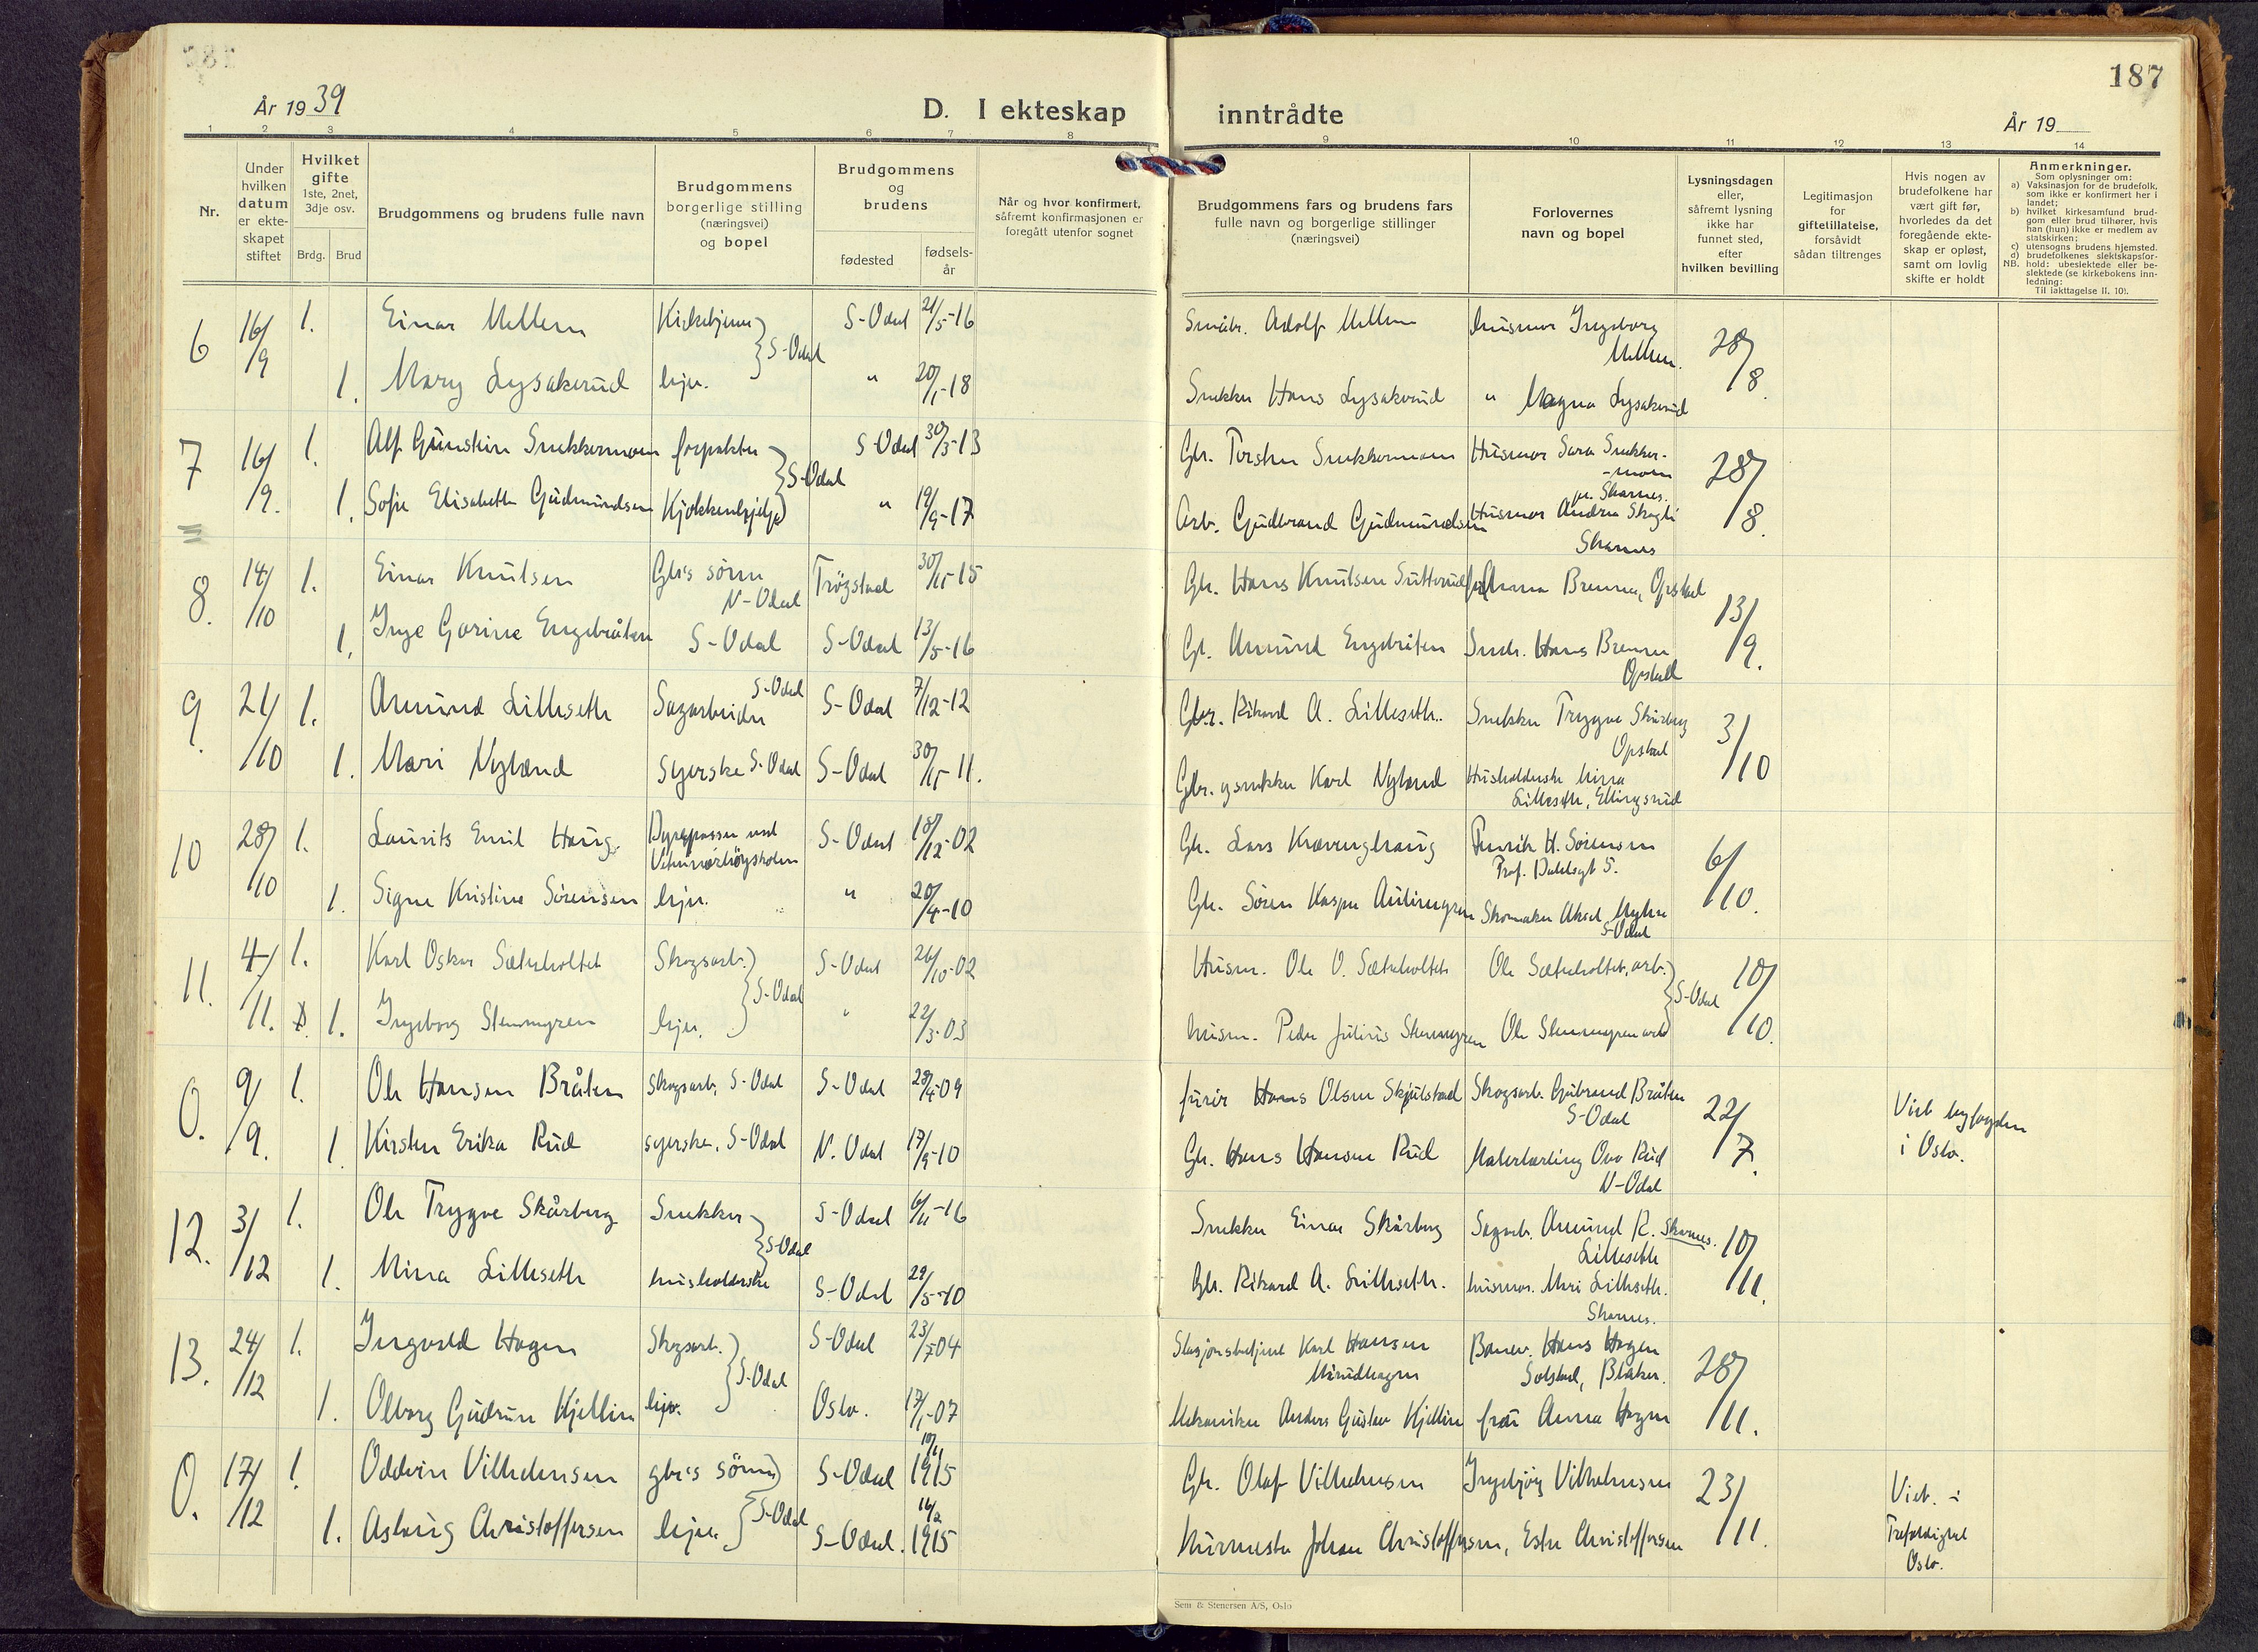 År 19 39
D. I ekteskap
inntrådte
187
År 19
1 2 3 4 5 6 7 8 9 10 11 12 13 14
Nr.
Under hvilken datum er ekteskapet stiftet
Hvilket gifte
1ste, 2net, 3dje osv.
Brdg. Brud
Brudgommens og brudens fulle navn
Brudgommens borgerlige stilling (næringsvei) og bopel
Brudgommens og brudens
fødested
fødsels-år
Når og hvor konfirmert, såfremt konfirmasjonen er foregått utenfor sognet
Brudgommens fars og brudens fars fulle navn og borgerlige stillinger (næringsvei)
Forlovernes navn og bopel
Lysningsdagen eller, såfremt lysning ikke har funnet sted, efter hvilken bevilling
Legitimasjon for giftetillatelse, forsåvidt sådan tiltrenges
Hvis nogen av brudefolkene har vært gift før, hvorledes da det foregående ekteskap er opløst, samt om lovlig skifte er holdt
Anmerkninger.
Som oplysninger om:
a) Vaksinasjon for de brudefolk, som ikke er konfirmert her i landet;
b) hvilket kirkesamfund brudgom eller brud tilhører, hvis han (hun) ikke er medlem av statskirken;
c) utensogns brudens hjemsted.
d) brudefolkenes slektskapsforhold: ubeslektede eller beslektede (se kirkebokens innledning:
NB. Til iakttagelse II, 10).
6 16/9 1. Einar Mellem Kirketjener S-Odal S-Odal 21/5-16 Småbr. Adolf Mellem husmor Ingeborg Mellem. 28/8
1. Mary Lysakerud hju. " 20/1-18 Snekker Hans Lysakerud " Magna Lysakerud
7 16/9. 1. Alf Gunstein Snekkermoen forpakter S-Odal S-Odal 30/3-13 Gbr. Torsten Snekkermoen Husmor Sara Snekkermoen pr. Skarnes. 28/8.
1. Sofie Elisabeth Gudmundsen Kjøkkenhjelp " 19/9-17 Arb. Gudbrand Gudmundsen Husmor Andrea Skogli Skarnes
8. 14/10 1. Einar Knutsen Gbr's sønn N-Odal Trøgstad 30/11-15 Gbr. Hans Knutsen Sutterud Anna Brenna, Opstad 13/9.
1. Inge Garine Engebråten S-Odal S-Odal 13/5-16 Gbr. Amund Engebråten Hans Brenna Opstad
9. 21/10 1. Amund Lilleseth Sagarbeider S-Odal S-Odal 7/12-12 Gbr. Rikard A. Lilleseth. Snekker Trygve Skårberg Opstad 3/10
1. Mari Nyland syerske S-Odal S-Odal 30/11-11. Gbr. og snekker Karl Nyland Husholderske Mina Lilleseth, Ellingsrud
10 28/10 1. Laurits Emil Haug. Dyrepasser ved Veterinærhøyskolen S-Odal 18/12-02 Gbr. Lars Kræmmerhaug Henrik H. Sørensen Prof. Dahlsgt 5. 6/10.
1. Signe Kristine Sørensen hju. " 20/4-10 Gbr. Søren Kasper Skomaker Aksel Myhre S-Odal
11. 4/11. 1. Karl Oskar Sæterholtet Skogsarb. S-Odal S-Odal 26/10-02 Husm. Ole O. Sæterholtet Ole Sæterholtet, arb. S-Odal 10/10.
1. Ingeborg Stenmyren hju. " 22/3-03 husm. Peder Julius Stenmyren Ole Stenmyren arb
0. 9/9. 1. Ole Hansen Bråten Skogsarb, S-Odal S-Odal 28/4-09 furer Hans Olsen Skjulstad Skogsarb. Gubrand Bråten S-Odal 22/7. Viet byfogden i Oslo.
1. Kirsten Erika Rud syerske, S-Odal N. Odal 17/9-10 Gbr. Hans Hansen Rud Malerlærling Ove Rud N-Odal
12. 3/12 1. Ole Trygve Skårberg Snekker S-Odal S-Odal 6/11-16 Snekker Einar Skårberg Sagarb. Amund R. Lilleseth Skarnes. 10/11.
1. Mina Lilleseth husholderske S-Odal 29/5-10 Gbr. Rikard A. Lilleseth. husmor. Mari Lilleseth. Skarnes.
13. 24/12 1. Ingvald Hagen Skogsarb. S-Odal S-Odal 23/7-04 Stasjonsbetjent Karl Hansen Banev. Hans Hagen Solstad, Blaker. 28/11.
1. Olborg Gudrun Kjellin hju. Oslo. 17/1-07 Mekaniker Anders Gustav Kjellin fru Anna Hagen
0. 17/12 1. Oddvin Vilhelmsen gbr's sønn S-Odal S-Odal 1915 Gbr. Olaf Vilhelmsen Ingebjørg Vilhelmsen 23/11. Viet. i Trefoldighet Oslo.
1. Aslaug Christoffersen hju. S-Odal. 1915 Murmester Johan Christoffersen, Ester Christoffersen
Sem & Stenersen A/S, Oslo